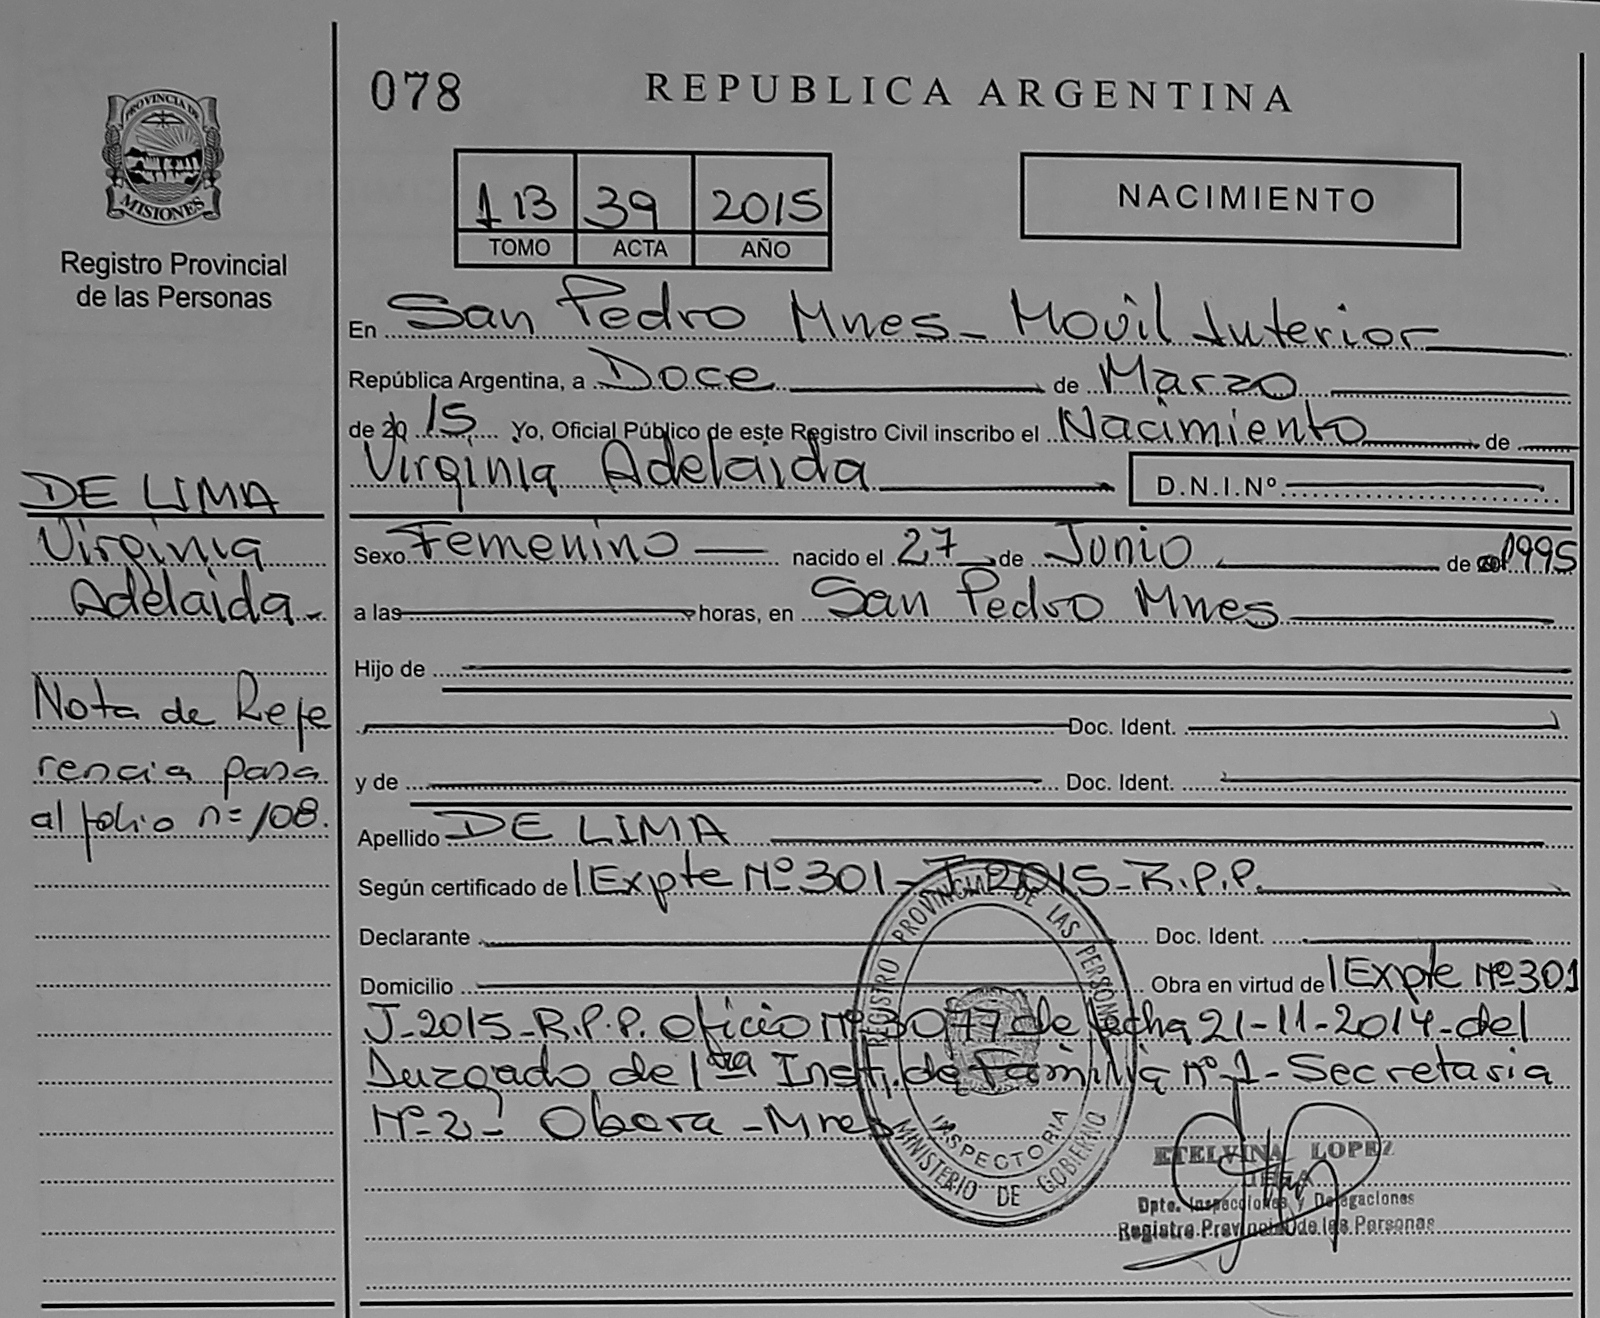 078
REPUBLICA ARGENTINA
PROVINCIA DE
MISIONES
Registro Provincial
de las Personas
113 39 2015
TOMO ACTA AÑO
NACIMIENTO
En San Pedro Mnes - Movil Interior
República Argentina, a Doce de Marzo
de 20 15 Yo, Oficial Público de este Registro Civil inscribo el Nacimiento de
Virginia Adelaida D.N.I.Nº
Sexo Femenino nacido el 27 de Junio de 1995
a las horas, en San Pedro Mnes
Hijo de
Doc. Ident.
y de Doc. Ident.
Apellido DE LIMA
Según certificado de Expte Nº 301 - J-2015 - R.P.P.
Declarante Doc. Ident.
Domicilio Obra en virtud de Expte Nº 301
J-2015-R.P.P. Oficio Nº 3077 de fecha 21-11-2014 - del
Juzgado de 1ra Inst. de Familia Nº 1 - Secretaria
Nº 2 - Obera - Mnes
DE LIMA
Virginia
Adelaida.-
Nota de Refe
rencia pasa
al folio nº 108.
REGISTRO PROVINCIAL DE LAS PERSONAS
INSPECTORIA
MINISTERIO DE GOBIERNO
ETELVINA LOPEZ
JEFA
Dpto. Inspecciones y Delegaciones
Registro Provincial de las Personas